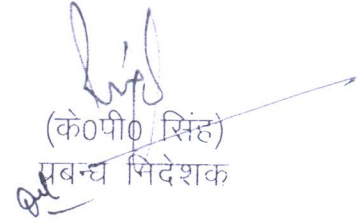 (के0पी0 सिंह)
प्रबन्ध निदेशक